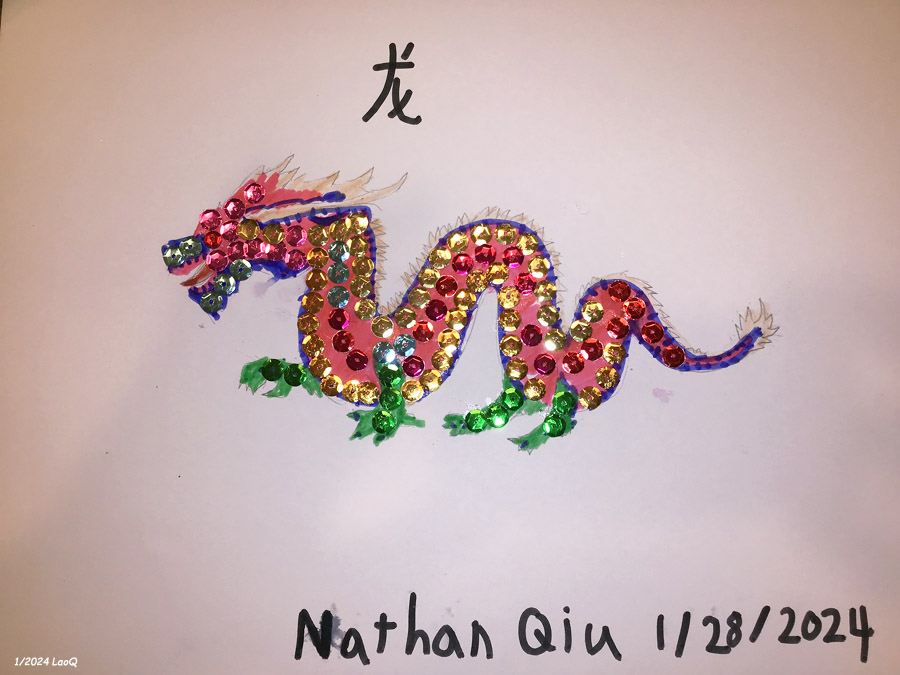 龙
Nathan Qiu 1/28/2024
1/2024 LaoQ